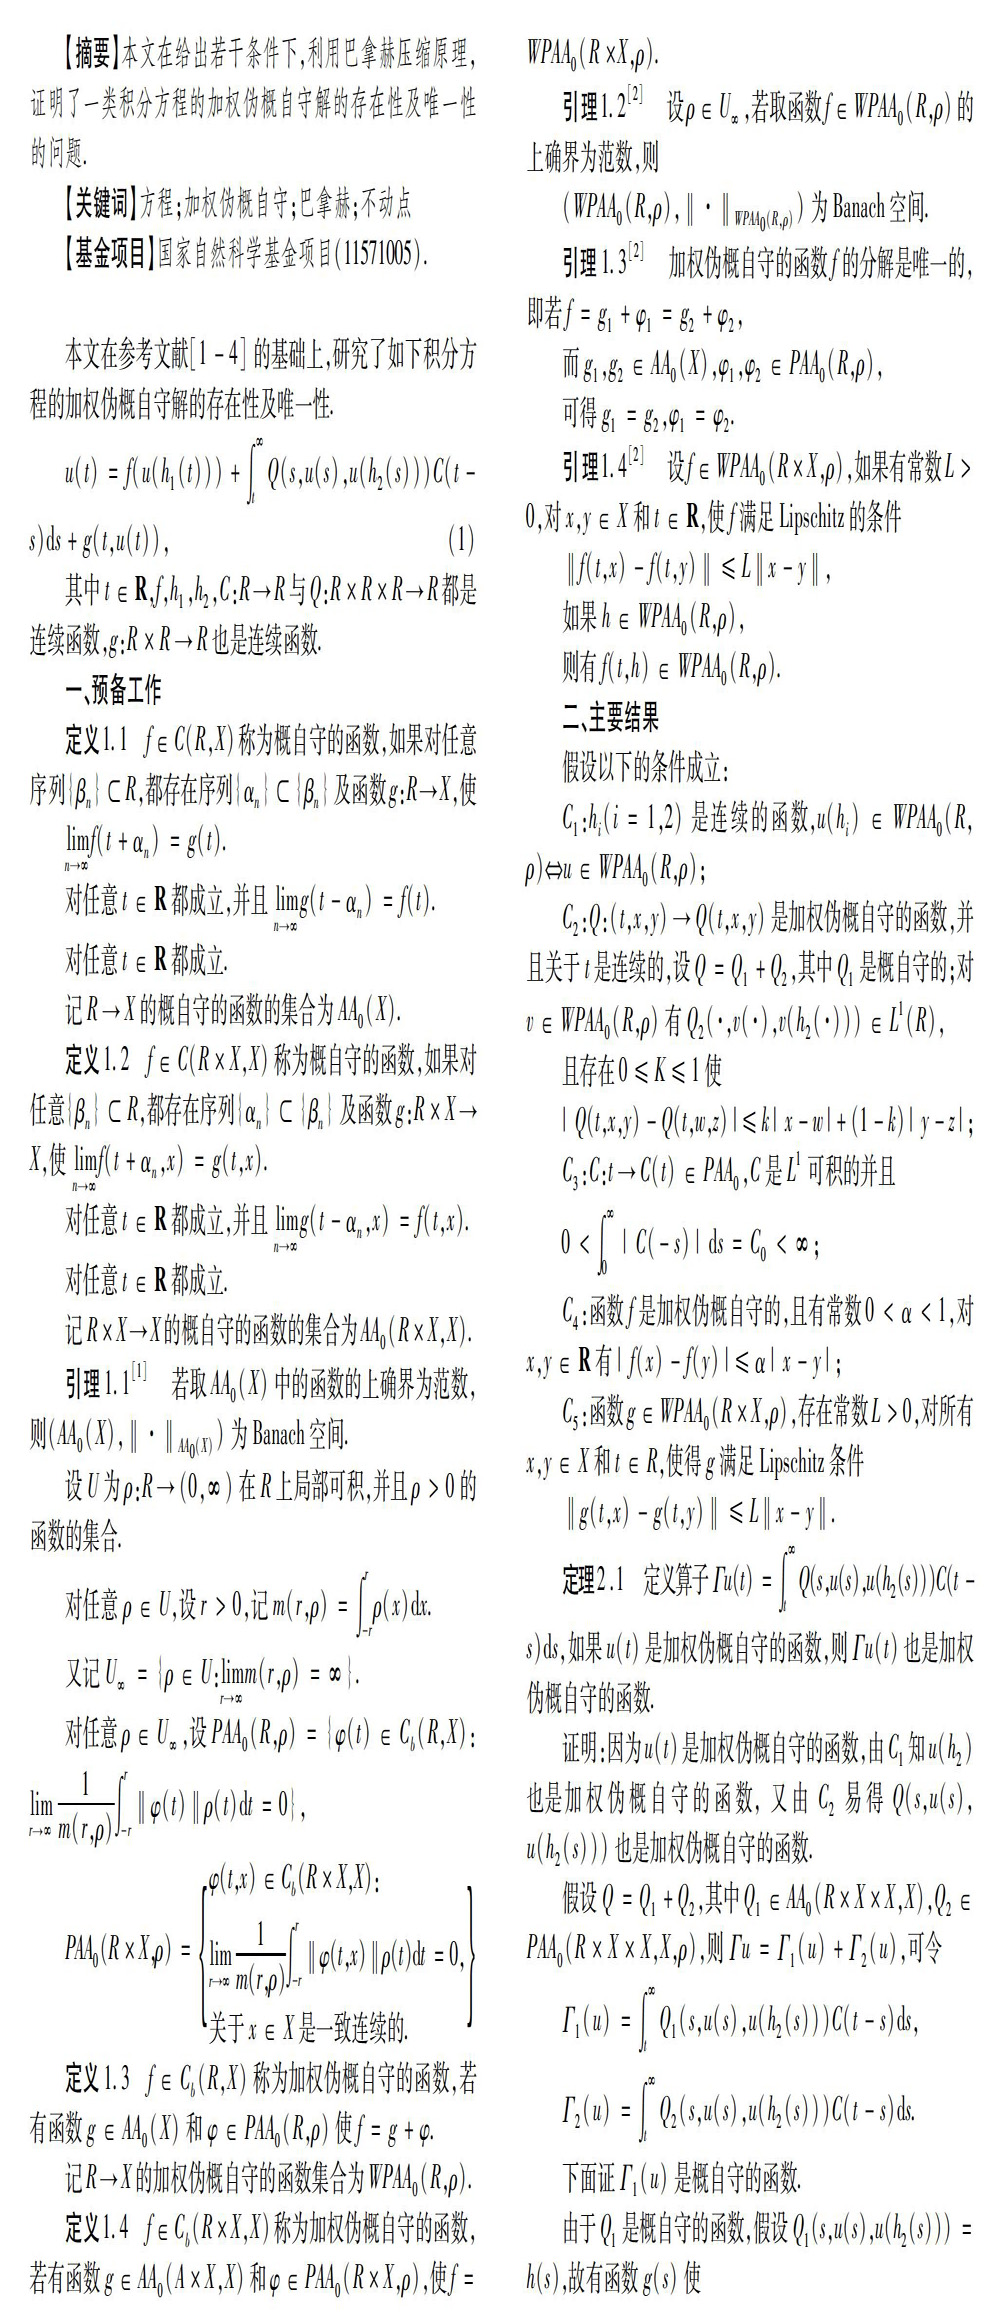 【摘要】本文在给出若干条件下,利用巴拿赫压缩原理,
证明了一类积分方程的加权伪概自守解的存在性及唯一性
的问题.
【关键词】方程;加权伪概自守;巴拿赫;不动点
【基金项目】国家自然科学基金项目(11571005).
本文在参考文献[1-4]的基础上,研究了如下积分方
程的加权伪概自守解的存在性及唯一性.
u(t) = f(u(h₁(t))) + ∫_t^∞ Q(s,u(s),u(h₂(s)))C(t -
s)ds + g(t,u(t)), (1)
其中 t ∈ R,f,h₁,h₂,C:R→R 与 Q:R×R×R→R 都是
连续函数,g:R×R→R 也是连续函数.
一、预备工作
定义1.1 f∈C(R,X)称为概自守的函数,如果对任意
序列{βₙ}⊂R,都存在序列{αₙ}⊂{βₙ}及函数g:R→X,使
lim_{n→∞} f(t+αₙ) = g(t).
对任意 t∈R 都成立,并且 lim_{n→∞} g(t-αₙ) = f(t).
对任意 t∈R 都成立.
记 R→X 的概自守的函数的集合为 AA₀(X).
定义1.2 f∈C(R×X,X)称为概自守的函数,如果对
任意{βₙ}⊂R,都存在序列{αₙ}⊂{βₙ}及函数g:R×X→
X,使 lim_{n→∞} f(t+αₙ,x) = g(t,x).
对任意 t∈R 都成立,并且 lim_{n→∞} g(t-αₙ,x) = f(t,x).
对任意 t∈R 都成立.
记 R×X→X的概自守的函数的集合为AA₀(R×X,X).
引理1.1[1] 若取AA₀(X)中的函数的上确界为范数,
则(AA₀(X),‖·‖_{AA₀(X)})为Banach空间.
设 U 为 ρ:R→(0,∞)在 R 上局部可积,并且 ρ>0 的
函数的集合.
对任意 ρ∈U,设 r>0,记 m(r,ρ) = ∫_{-r}^{r} ρ(x)dx.
又记 U_∞ = {ρ∈U: lim_{r→∞} m(r,ρ) = ∞}.
对任意 ρ∈U_∞,设 PAA₀(R,ρ) = {φ(t)∈C_b(R,X):
lim_{r→∞} 1/m(r,ρ) ∫_{-r}^{r} ‖φ(t)‖ρ(t)dt = 0},
φ(t,x)∈C_b(R×X,X):
PAA₀(R×X,ρ) = { lim_{r→∞} 1/m(r,ρ) ∫_{-r}^{r} ‖φ(t,x)‖ρ(t)dt = 0, }
关于 x∈X 是一致连续的.
定义1.3 f∈C_b(R,X)称为加权伪概自守的函数,若
有函数 g∈AA₀(X)和 φ∈PAA₀(R,ρ)使 f=g+φ.
记 R→X 的加权伪概自守的函数集合为 WPAA₀(R,ρ).
定义1.4 f∈C_b(R×X,X)称为加权伪概自守的函数,
若有函数 g∈AA₀(A×X,X)和 φ∈PAA₀(R×X,ρ),使f=
WPAA₀(R×X,ρ).
引理1.2[2] 设ρ∈U_∞,若取函数f∈WPAA₀(R,ρ)的
上确界为范数,则
(WPAA₀(R,ρ),‖·‖_{WPAA₀(R,ρ)})为Banach空间.
引理1.3[2] 加权伪概自守的函数f的分解是唯一的,
即若 f = g₁+φ₁ = g₂+φ₂,
而 g₁,g₂∈AA₀(X),φ₁,φ₂∈PAA₀(R,ρ),
可得 g₁ = g₂,φ₁ = φ₂.
引理1.4[2] 设f∈WPAA₀(R×X,ρ),如果有常数L>
0,对 x,y∈X 和 t∈R,使 f 满足 Lipschitz 的条件
‖f(t,x)-f(t,y)‖≤L‖x-y‖,
如果 h∈WPAA₀(R,ρ),
则有 f(t,h)∈WPAA₀(R,ρ).
二、主要结果
假设以下的条件成立:
C₁:hᵢ(i=1,2)是连续的函数,u(hᵢ)∈WPAA₀(R,
ρ)⇔u∈WPAA₀(R,ρ);
C₂:Q:(t,x,y)→Q(t,x,y)是加权伪概自守的函数,并
且关于 t 是连续的,设 Q=Q₁+Q₂,其中 Q₁ 是概自守的;对
v∈WPAA₀(R,ρ)有 Q₂(·,v(·),v(h₂(·)))∈L¹(R),
且存在 0≤K≤1 使
|Q(t,x,y)-Q(t,w,z)|≤k|x-w|+(1-k)|y-z|;
C₃:C:t→C(t)∈PAA₀,C 是 L¹ 可积的并且
0 < ∫_0^∞ |C(-s)|ds = C₀ < ∞;
C₄:函数 f 是加权伪概自守的,且有常数 0<α<1,对
x,y∈R 有|f(x)-f(y)|≤α|x-y|;
C₅:函数 g∈WPAA₀(R×X,ρ),存在常数 L>0,对所有
x,y∈X 和 t∈R,使得 g 满足 Lipschitz 条件
‖g(t,x)-g(t,y)‖≤L‖x-y‖.
定理2.1 定义算子 Γu(t) = ∫_t^∞ Q(s,u(s),u(h₂(s)))C(t-
s)ds,如果 u(t)是加权伪概自守的函数,则 Γu(t)也是加权
伪概自守的函数.
证明:因为 u(t)是加权伪概自守的函数,由 C₁ 知 u(h₂)
也是加权伪概自守的函数,又由 C₂ 易得 Q(s,u(s),
u(h₂(s)))也是加权伪概自守的函数.
假设 Q=Q₁+Q₂,其中 Q₁∈AA₀(R×X×X,X),Q₂∈
PAA₀(R×X×X,X,ρ),则 Γu=Γ₁(u)+Γ₂(u),可令
Γ₁(u) = ∫_t^∞ Q₁(s,u(s),u(h₂(s)))C(t-s)ds,
Γ₂(u) = ∫_t^∞ Q₂(s,u(s),u(h₂(s)))C(t-s)ds.
下面证 Γ₁(u)是概自守的函数.
由于 Q₁ 是概自守的函数,假设 Q₁(s,u(s),u(h₂(s))) =
h(s),故有函数 g(s)使